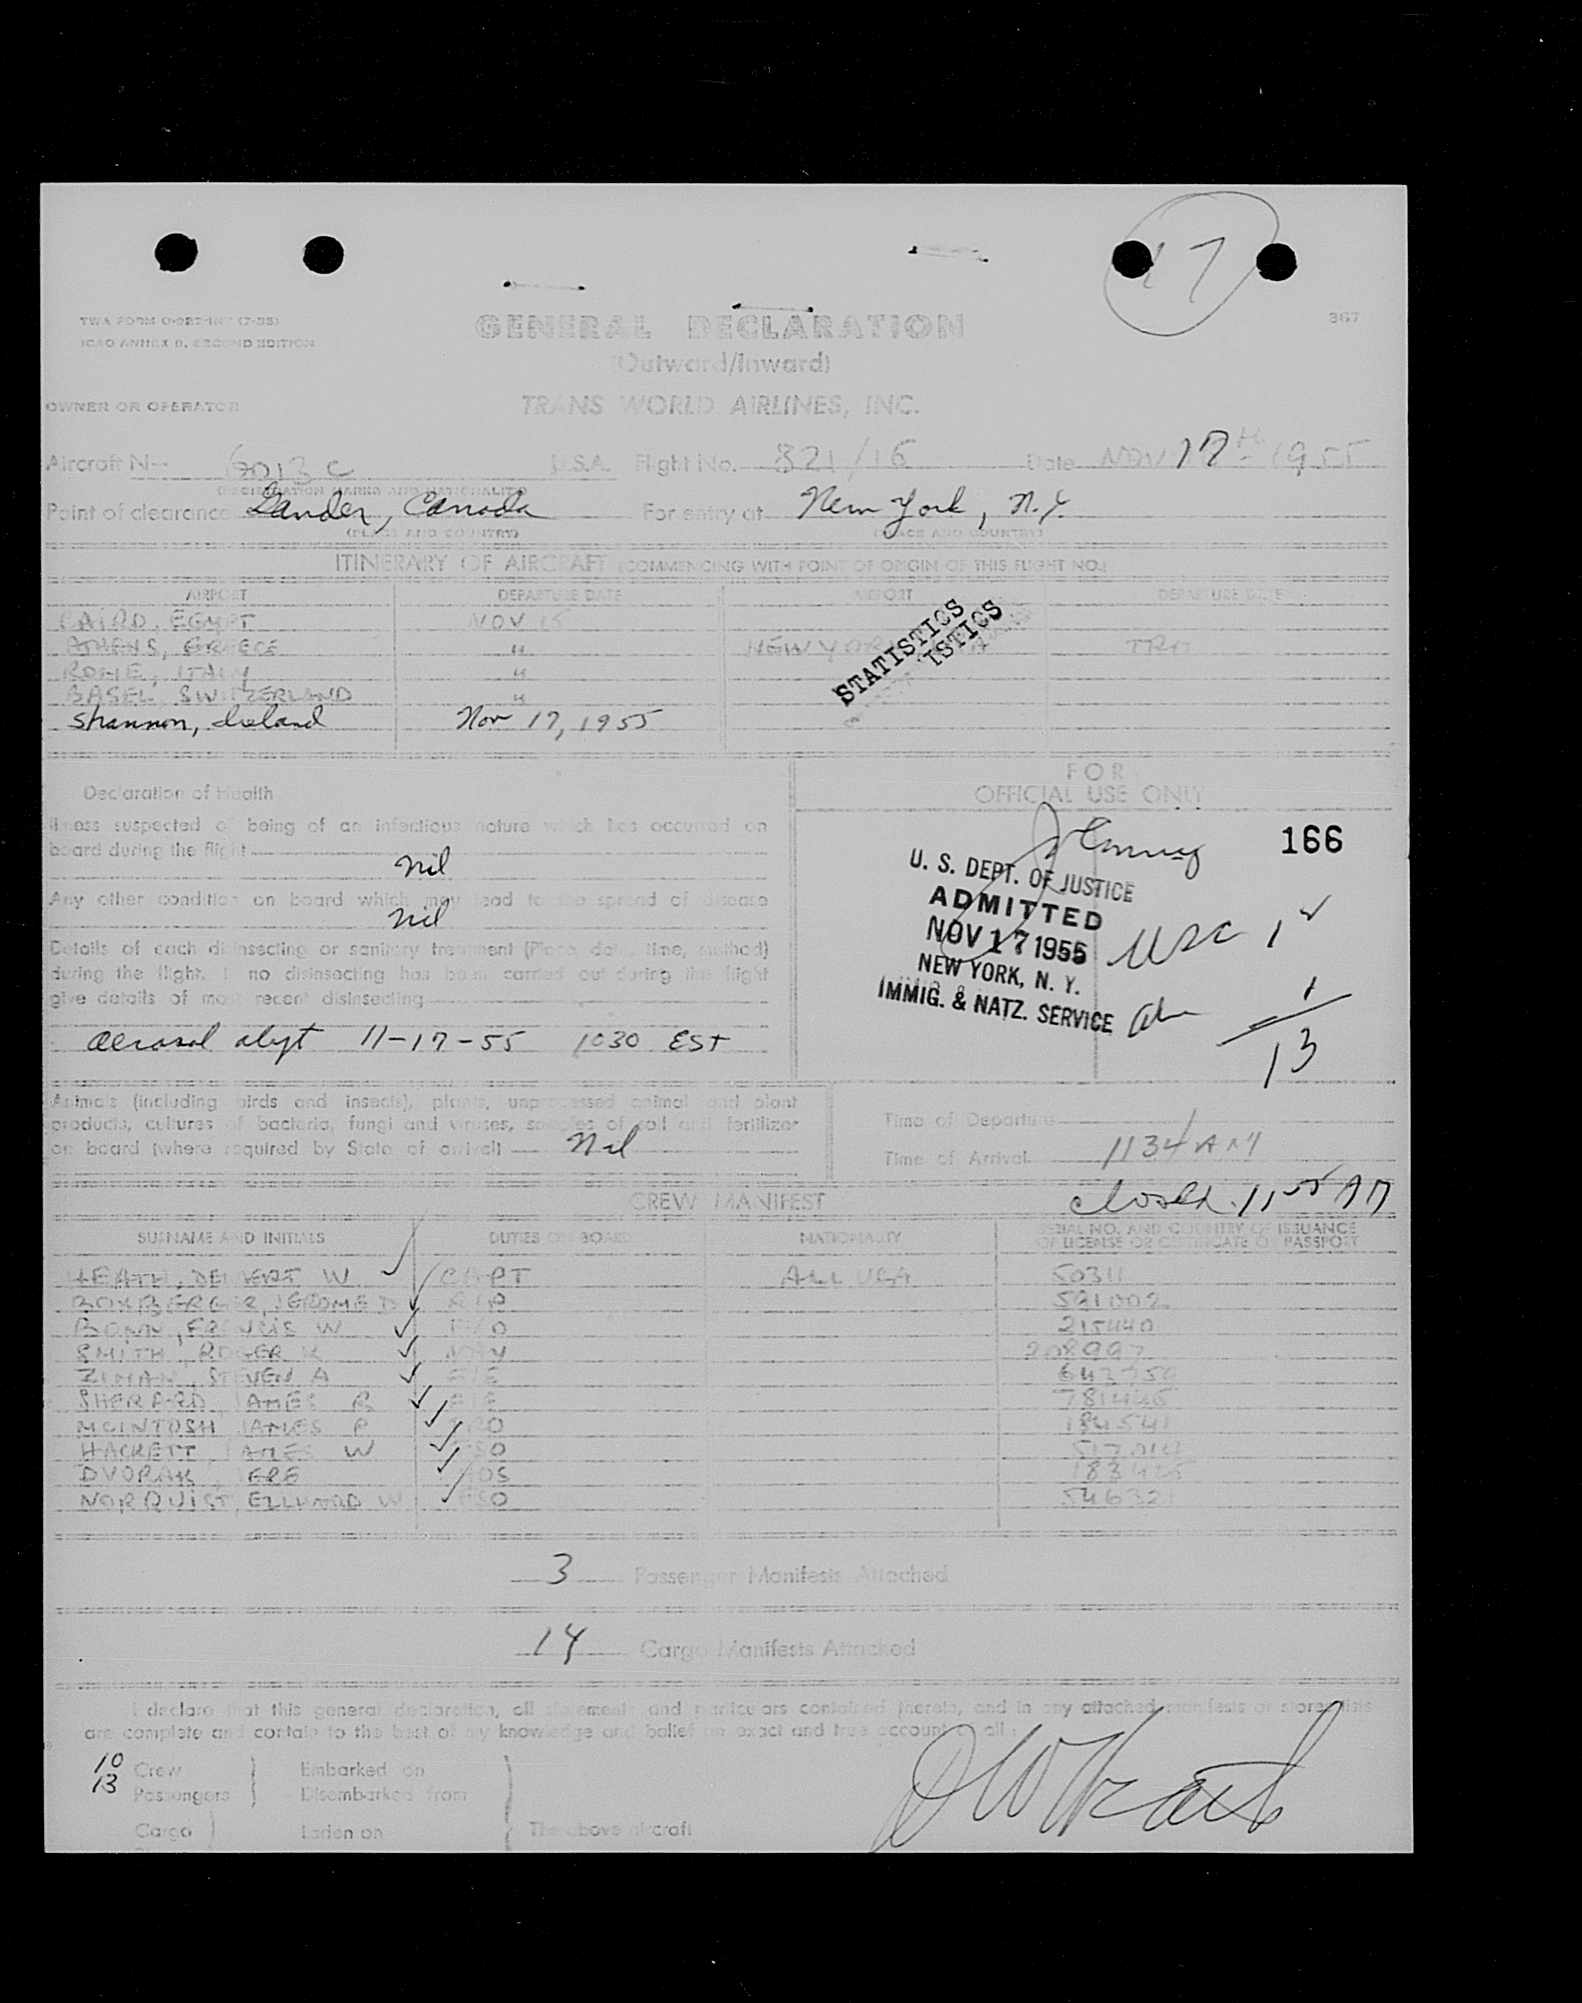 17
TWA FORM
ICAO ANNEX 9, SECOND EDITION
367
GENERAL DECLARATION
(Outward/Inward)
OWNER OR OPERATOR
TRANS WORLD AIRLINES, INC.
Aircraft N— 6013C U.S.A. Flight No. 821/16 Date NOV 17th 1955
(REGISTRATION MARKS AND NATIONALITY)
Point of clearance Gander, Canada For entry at New York, N.Y.
(PLACE AND COUNTRY) (PLACE AND COUNTRY)
ITINERARY OF AIRCRAFT (COMMENCING WITH POINT OF ORIGIN OF THIS FLIGHT NO.)
AIRPORT DEPARTURE DATE AIRPORT DEPARTURE DATE
CAIRO, EGYPT NOV 15
ATHENS, GREECE " NEW YORK
ROME, ITALY "
BASEL SWITZERLAND "
Shannon, Ireland Nov 17, 1955
STATISTICS
ISTICS
Declaration of Health
FOR
OFFICIAL USE ONLY
Illness suspected of being of an infectious nature which has occurred on
board during the flight
nil
Any other condition on board which may lead to the spread of disease
nil
Details of each disinsecting or sanitary treatment (Place, date, time, method)
during the flight. If no disinsecting has been carried out during the flight
give details of most recent disinsecting
aerosol 11-17-55 1030 EST
166
U. S. DEPT. OF JUSTICE
ADMITTED
NOV 17 1955
NEW YORK, N. Y.
IMMIG. & NATZ. SERVICE
USC 1
13
Animals (including birds and insects), plants, unprocessed animal and plant
products, cultures of bacteria, fungi and viruses, samples of soil and fertilizer
on board (where required by State of arrival) Nil
Time of Departure
Time of Arrival 1134 AM
closed 11 55 AM
CREW MANIFEST
SURNAME AND INITIALS DUTIES ON BOARD NATIONALITY SERIAL NO. AND COUNTRY OF ISSUANCE
OF LICENSE OR CERTIFICATE OR PASSPORT
HEATH, W. CAPT ALL USA 50311
BOXBERGER, JEROME D 591002
BONN, FRANCIS W F/O 215440
SMITH, ROGER K NAV 208997
ZIMAN, STEVEN A F/E
SHERARD JAMES B F/E
MCINTOSH JAMES P 184541
HACKETT, JAMES W
DVORAK, JERE
NORQUIST,
3 Passenger Manifests Attached
14 Cargo Manifests Attached
I declare that this general declaration, all statements and particulars contained therein, and in any attached manifests or stores lists
are complete and contain to the best of my knowledge and belief an exact and true account of all:
10 Crew Embarked on
13 Passengers Disembarked from
Cargo Laden on The above aircraft
D W Heath